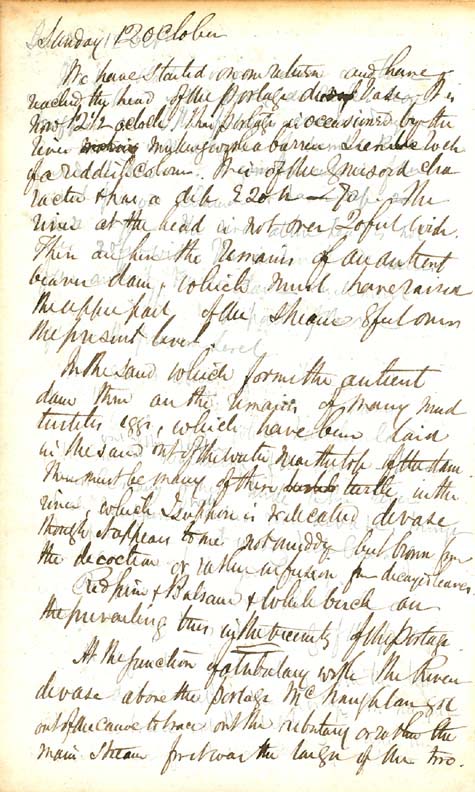 Sunday 12 October
We have started on our return and have
reached the head of the portage devase. It is
now 12 1/2 o clock. The portage is occasioned by the
river making its way over a barrier rock
of a reddish colour. It is of the gneissoid cha
racter & has a dip E 20 N 70° The
river at the head is not over 20 feet wide.
There are here the remains of an antient
beaver dam, which must have raised
the upper part of the stream 8 feet over
the present level.
In the sand which forms the antient
dam there are the remains of many mud
turtles eggs, which have been laid
in the sand out of the water near the top of the dam.
There must be many of these turtle in the
river, which I suppose is called devase
though it appears to me not muddy but brown from
the decoction or rather infusion from decayed leaves.
Red pine & Balsam & white birch are
the prevailing trees in the vicinity of the portage.
At the junction of a tributary with the River
devase above the portage McNaughtan got
out of the canoe to trace out the tributary or rather the
main stream for it was the larger of the two.